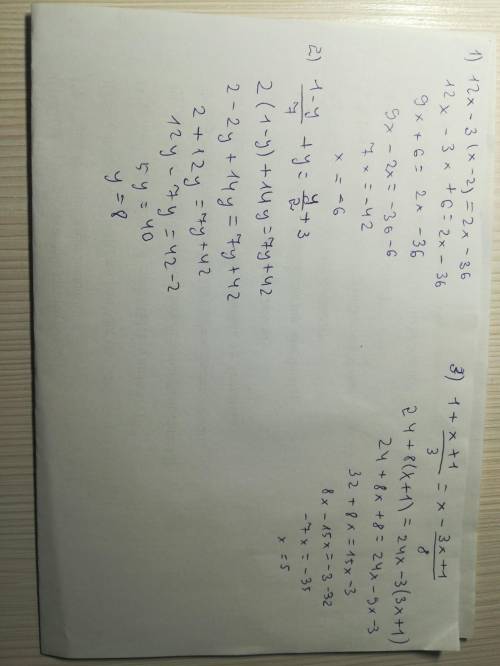 1) 12x - 3(x-2) = 2x - 36
12x - 3x + 6 = 2x - 36
9x + 6 = 2x - 36
9x - 2x = -36 - 6
7x = -42
x = -6
2) \frac{1-y}{7} + y = \frac{y}{2} + 3
2(1-y) + 14y = 7y + 42
2 - 2y + 14y = 7y + 42
2 + 12y = 7y + 42
12y - 7y = 42 - 2
5y = 40
y = 8
3) 1 + \frac{x+1}{3} = x - \frac{3x+1}{8}
24 + 8(x+1) = 24x - 3(3x+1)
24 + 8x + 8 = 24x - 9x - 3
32 + 8x = 15x - 3
8x - 15x = -3 - 32
-7x = -35
x = 5